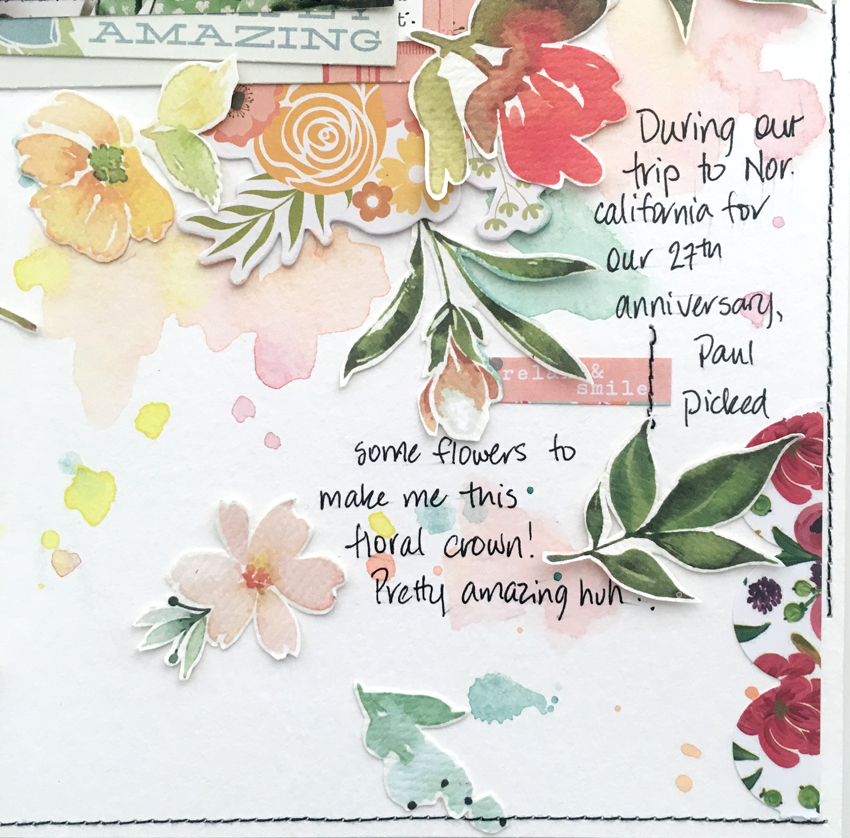 AMAZING
During our
trip to Nor.
california for
our 27th
anniversary,
Paul
picked
relax &
smile
some flowers to
make me this
floral crown!
Pretty amazing huh..